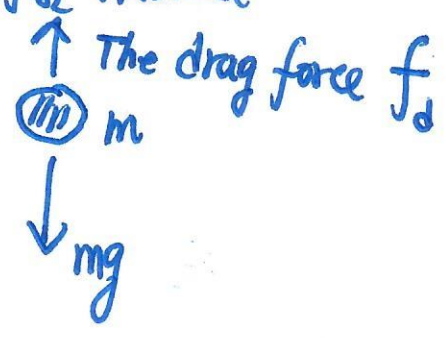 The drag force f_d
m
mg